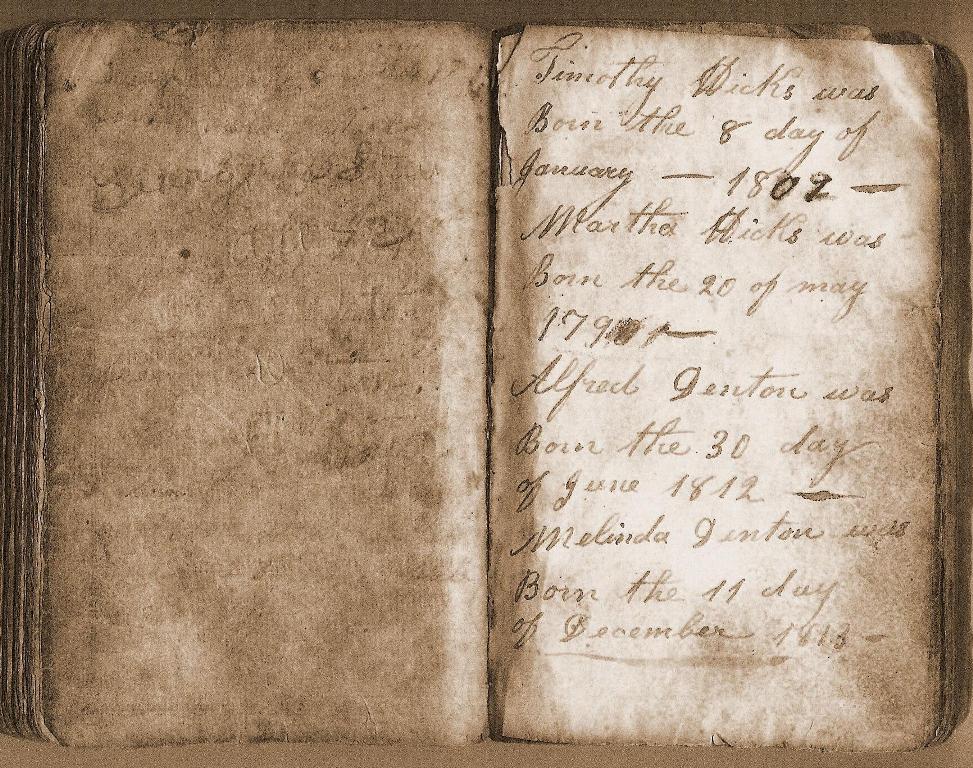 Timothy Hicks was
Born the 8 day of
January — 1802 —
Martha Hicks was
Born the 20 of may
Alfred Denton was
Born the 30 day
of June 1812 —
Melinda Denton was
Born the 11 day
of December 1813 -